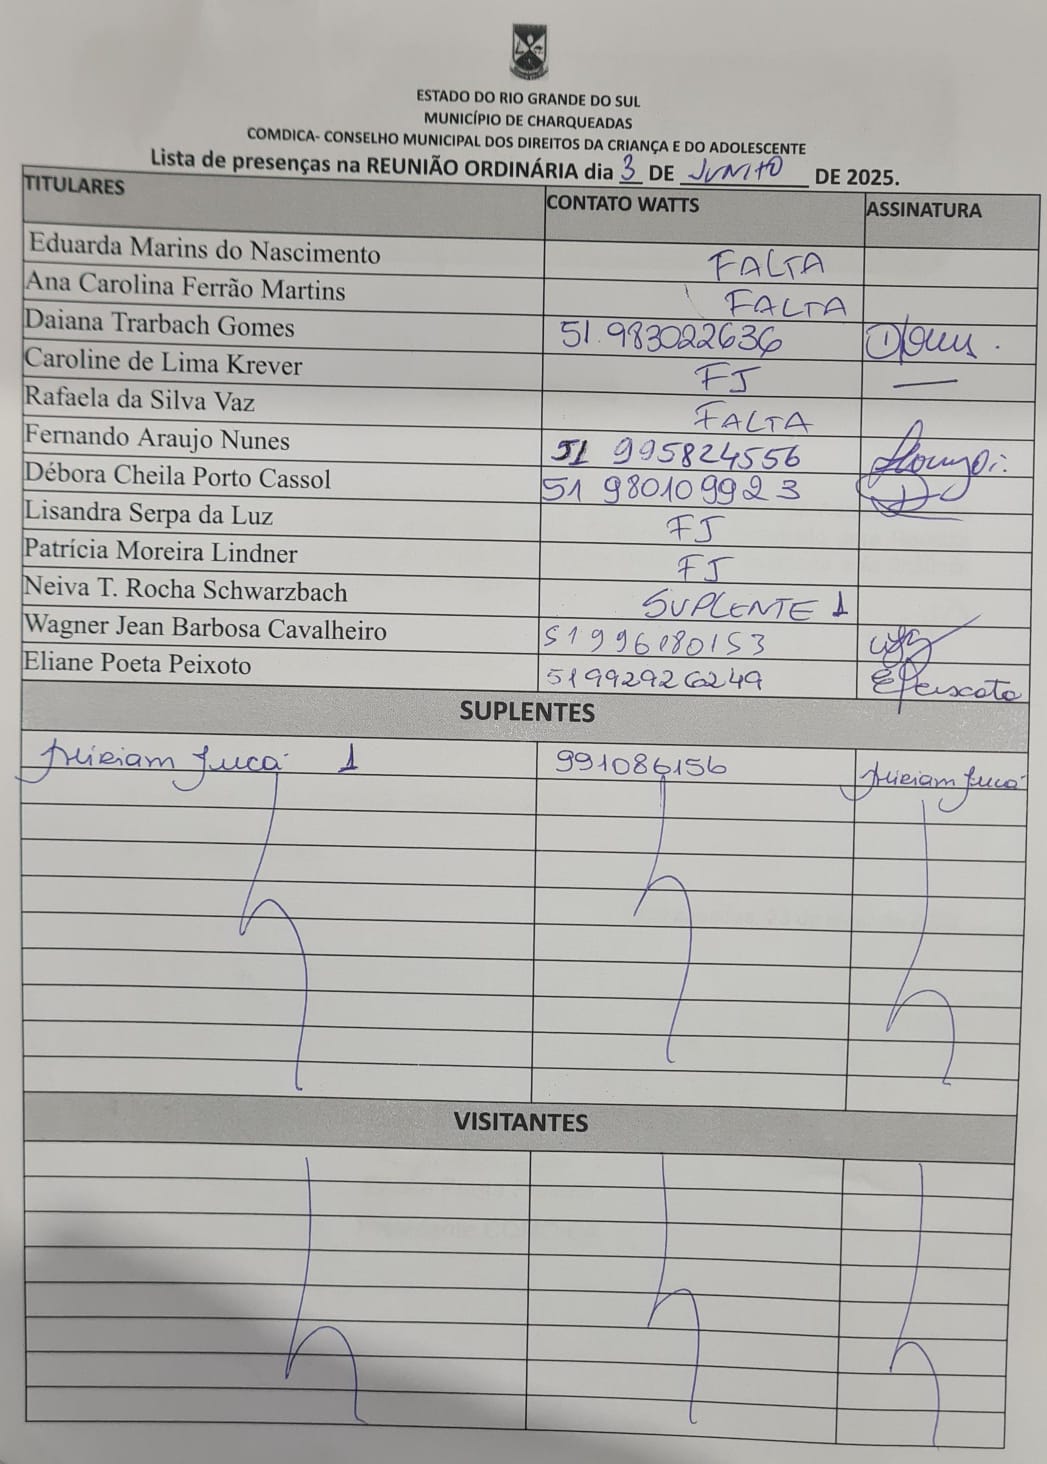 ESTADO DO RIO GRANDE DO SUL
MUNICÍPIO DE CHARQUEADAS
COMDICA- CONSELHO MUNICIPAL DOS DIREITOS DA CRIANÇA E DO ADOLESCENTE
Lista de presenças na REUNIÃO ORDINÁRIA dia 3 DE JUNHO DE 2025.
TITULARES CONTATO WATTS ASSINATURA
Eduarda Marins do Nascimento FALTA
Ana Carolina Ferrão Martins FALTA
Daiana Trarbach Gomes 51.983022636
Caroline de Lima Krever FJ —
Rafaela da Silva Vaz FALTA
Fernando Araujo Nunes 51 995824556
Débora Cheila Porto Cassol 51 980109923
Lisandra Serpa da Luz FJ
Patrícia Moreira Lindner FJ
Neiva T. Rocha Schwarzbach SUPLENTE 1
Wagner Jean Barbosa Cavalheiro 51996180153
Eliane Poeta Peixoto 51992926249 EPeixoto
SUPLENTES
Miriam Jucá 1 991086156 Miriam Jucá
VISITANTES